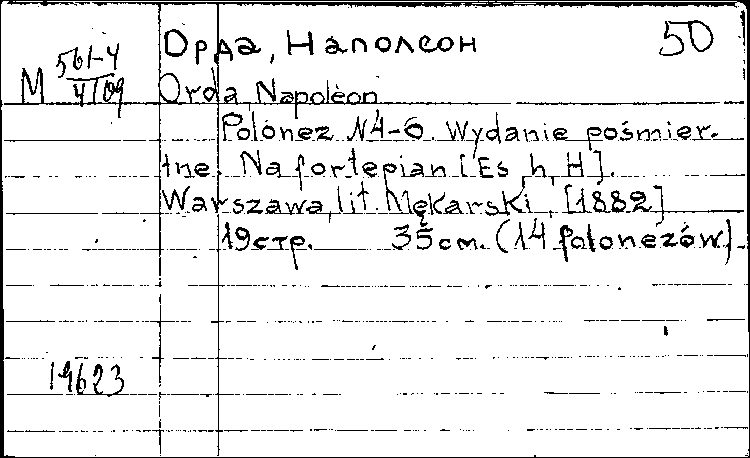 Орда, Наполеон 50
М 561-4/4109
Orda, Napoléon
Polonez N4-6. Wydanie pośmier-
tne. Na fortepian [Es, h, H].
Warszawa, lit. Mękarski, [1882]
19стр. 35см. (14 polonezów)
19623